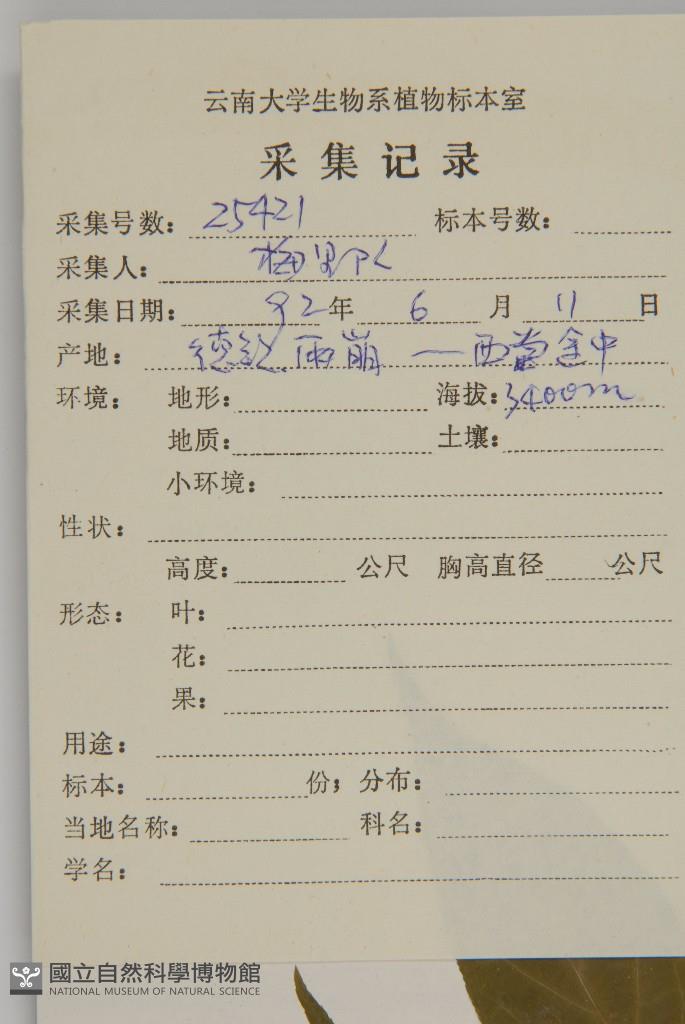 云南大学生物系植物标本室
采集记录
采集号数: 25421 标本号数:
采集人: 梅里队
采集日期: 92年 6 月 11 日
产地: 德钦雨崩一西当途中
环境: 地形: 海拔: 3400m
地质: 土壤:
小环境:
性状:
高度: 公尺 胸高直径 公尺
形态: 叶:
花:
果:
用途:
标本: 份; 分布:
当地名称: 科名:
学名:
國立自然科學博物館
NATIONAL MUSEUM OF NATURAL SCIENCE